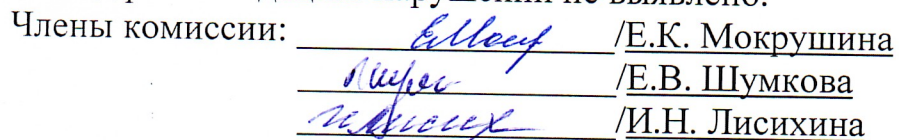 нарушений не выявлено.
Члены комиссии: /Е.К. Мокрушина
/Е.В. Шумкова
/И.Н. Лисихина